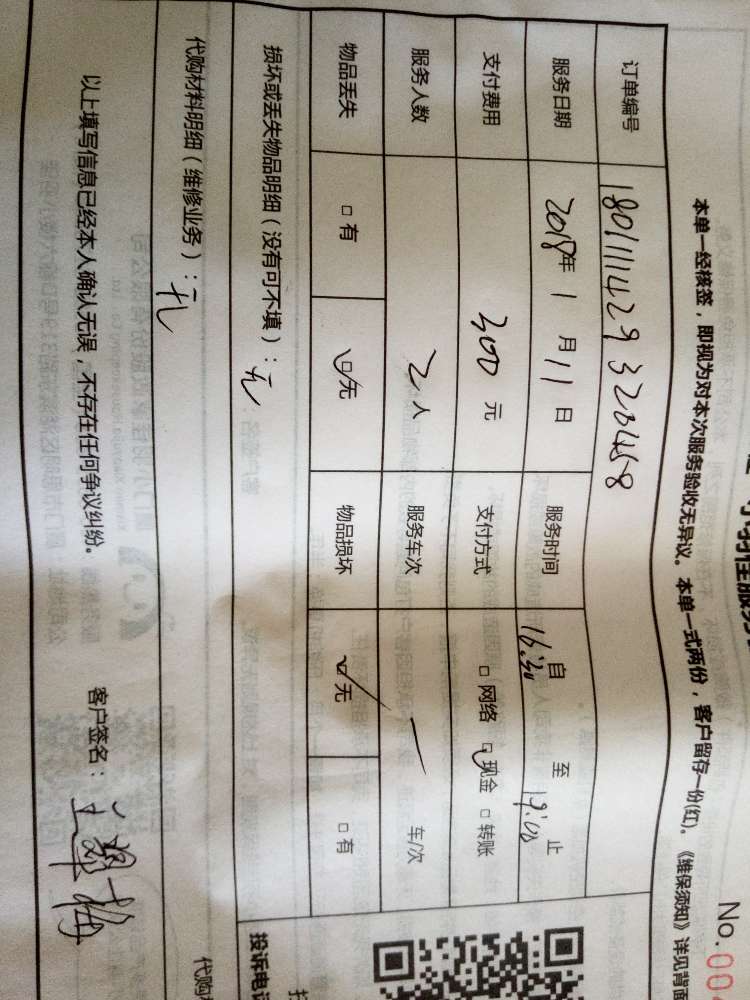 No. 00
本单一经核签，即视为对本次服务验收无异议。本单一式两份，客户留存一份(红)。《维保须知》详见背面
订单编号 1801111429328458
服务日期 2018年 1 月 11 日 服务时间 自 16:30 至 19:00 止
支付费用 300 元 支付方式 □ 网络 ☑ 现金 □ 转账
服务人数 2 人 服务车次 一 车/次
物品丢失 □ 有 ☑ 无 物品损坏 ☑ 无 □ 有
损坏或丢失物品明细（没有可不填）：无
投诉电
代购材料明细（维修业务）：无
代购
以上填写信息已经本人确认无误，不存在任何争议纠纷。 客户签名：